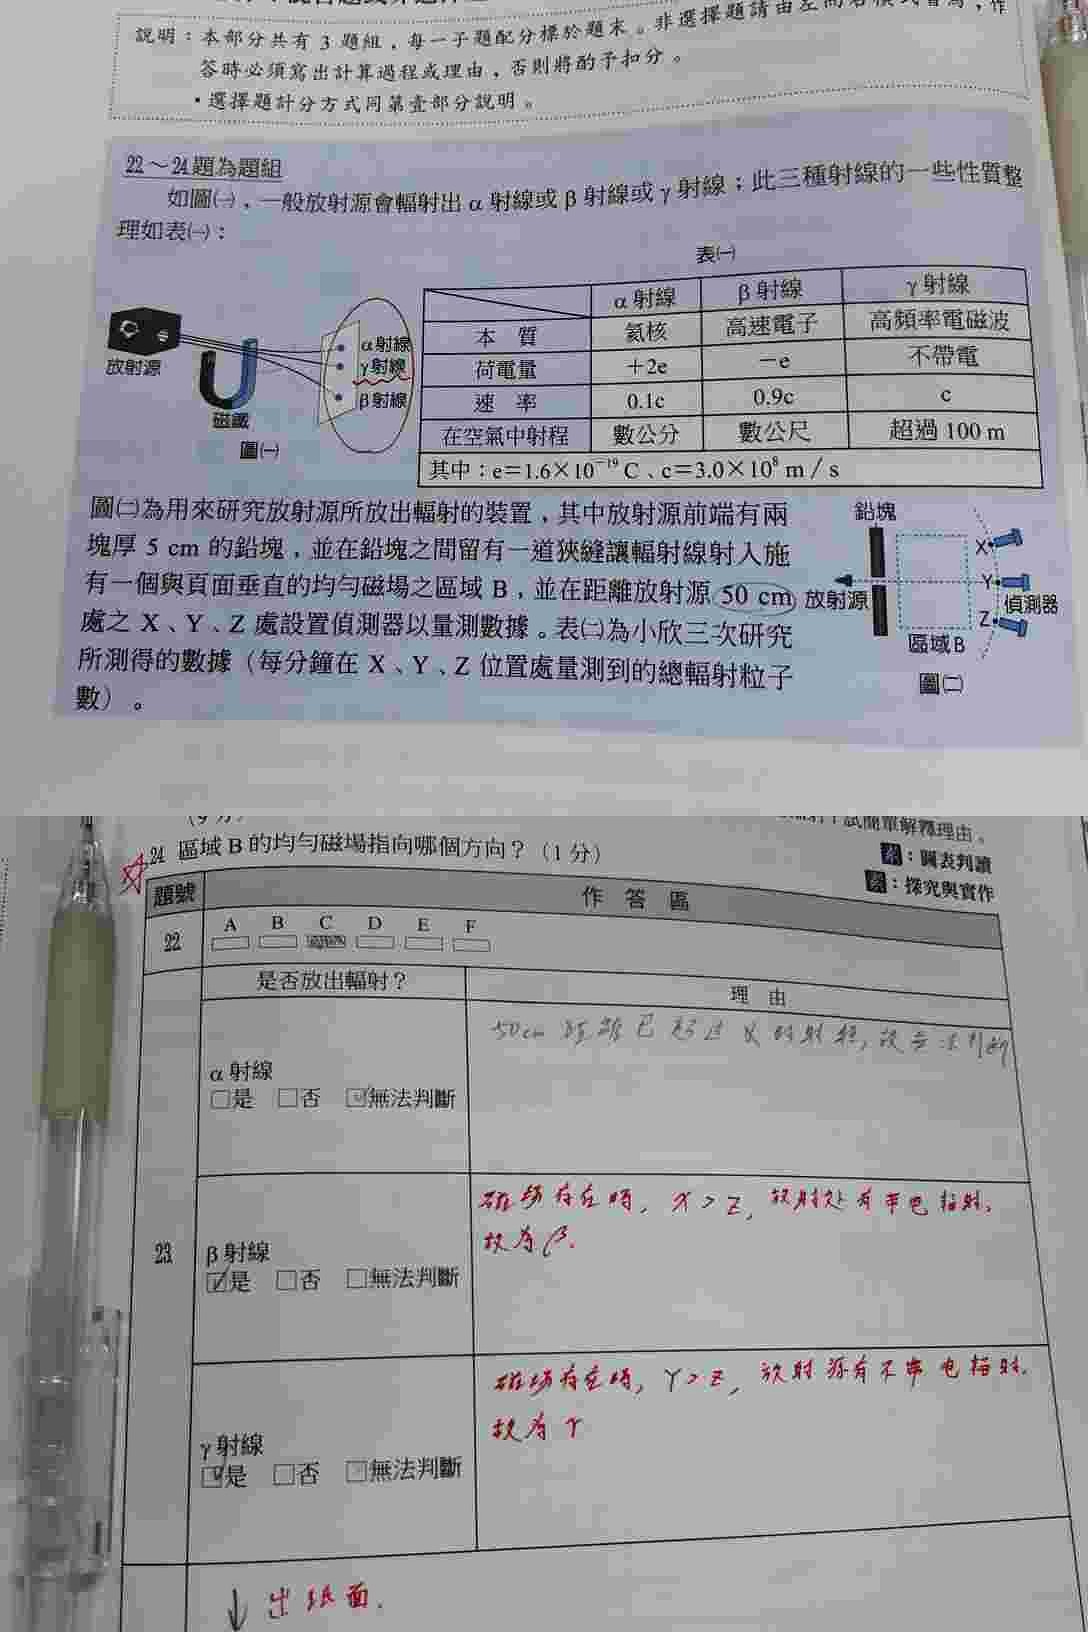 說明：本部分共有 3 題組，每一子題配分標於題末。非選擇題請由左而右橫式書寫，作
答時必須寫出計算過程或理由，否則將酌予扣分。
・選擇題計分方式同第壹部分說明。
22～24題為題組
如圖㈠，一般放射源會輻射出 α 射線或 β 射線或 γ 射線；此三種射線的一些性質整
理如表㈠：
表㈠
α 射線 β 射線 γ 射線
本 質 氦核 高速電子 高頻率電磁波
荷電量 +2e −e 不帶電
速 率 0.1c 0.9c c
在空氣中射程 數公分 數公尺 超過 100 m
其中：e=1.6×10⁻¹⁹ C、c=3.0×10⁸ m／s
放射源
磁鐵
α射線
γ射線
β射線
圖㈠
圖㈡為用來研究放射源所放出輻射的裝置，其中放射源前端有兩
塊厚 5 cm 的鉛塊，並在鉛塊之間留有一道狹縫讓輻射線射入施
有一個與頁面垂直的均勻磁場之區域 B，並在距離放射源 50 cm
處之 X、Y、Z 處設置偵測器以量測數據。表㈡為小欣三次研究
所測得的數據（每分鐘在 X、Y、Z 位置處量測到的總輻射粒子
數）。
鉛塊
X
Y
Z
放射源
偵測器
區域B
圖㈡
試簡單解釋理由。
24 區域 B 的均勻磁場指向哪個方向？（1 分）
：圖表判讀
：探究與實作
題號 作 答 區
22 A B C D E F
是否放出輻射？ 理 由
23
α 射線
□是 □否 □無法判斷
50cm 距離已超過 α 的射程，故無法判斷
β 射線
□是 □否 □無法判斷
磁場存在時，X>Z，放射处有帶电輻射，
故為β.
γ 射線
□是 □否 □無法判斷
磁場存在時，Y>Z，放射源有不帶电輻射.
故為γ
↓ 出紙面.